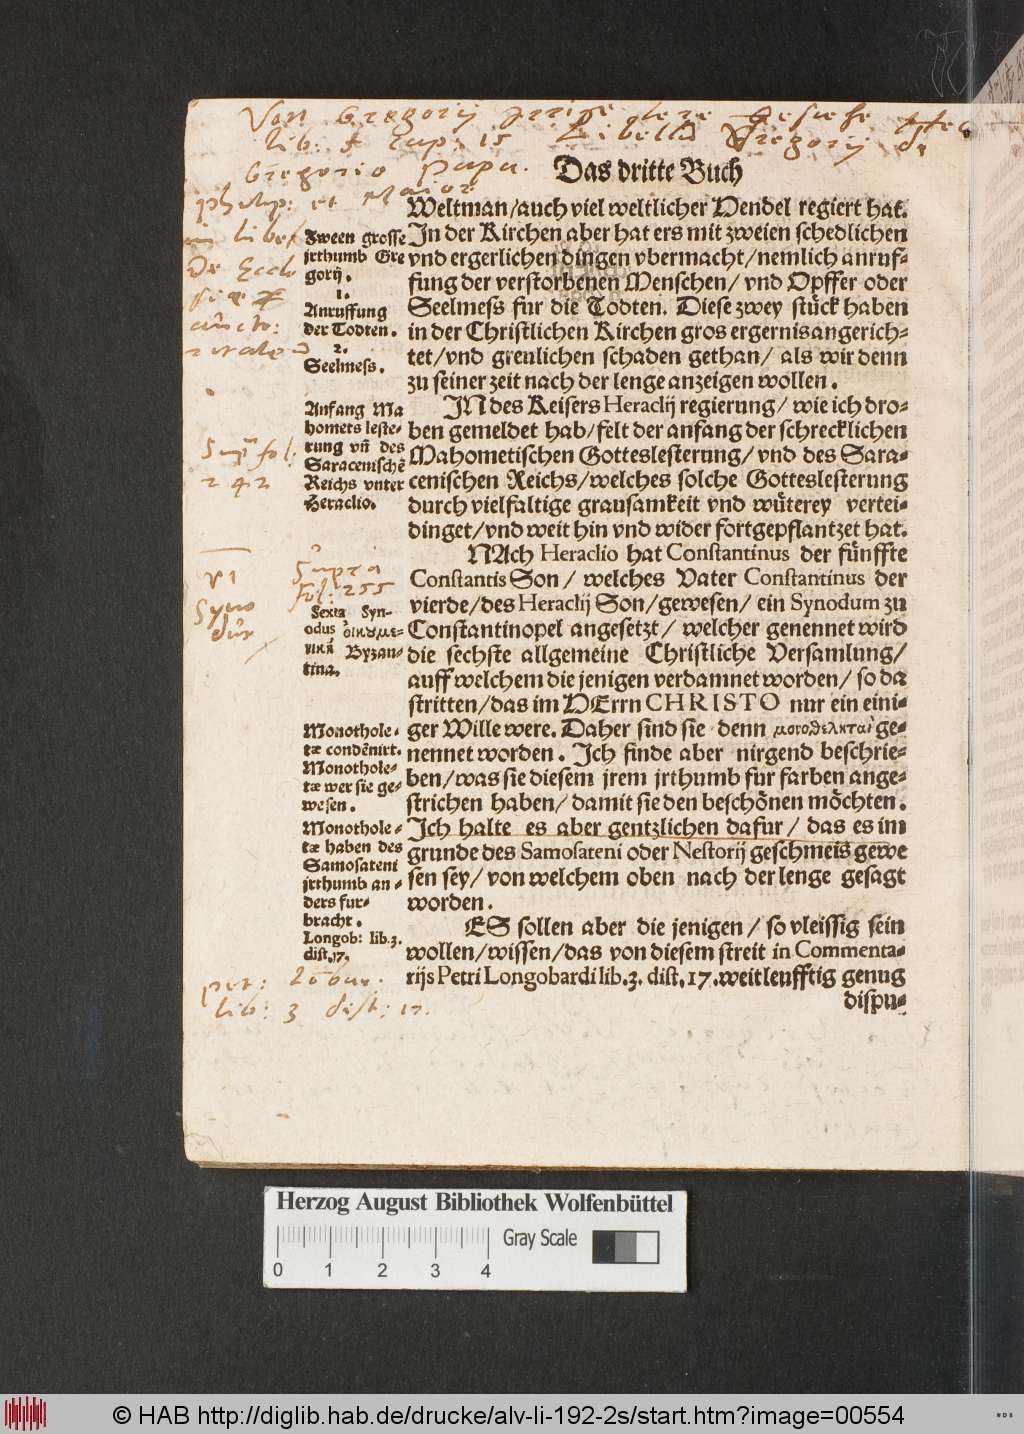 Von Gregorij
lib: cap: 15 Libello Gregorij
Gregorio Papa.
Das dritte Buch
Weltman/auch viel weltlicher Hendel regiert hat.
In der Kirchen aber hat ers mit zweien schedlichen
vnd ergerlichen dingen vbermacht/nemlich anruf-
fung der verstorbenen Menschen/ vnd Opffer oder
Seelmess fur die Todten. Diese zwey stück haben
in der Christlichen Kirchen gros ergernis angerich-
tet/vnd greulichen schaden gethan/ als wir denn
zu seiner zeit nach der lenge anzeigen wollen.
IN des Keisers Heraclij regierung/ wie ich dro-
ben gemeldet hab/felt der anfang der schrecklichen
Mahometischen Gotteslesterung/vnd des Sara-
cenischen Reichs/welches solche Gotteslesterung
durch vielfaltige grausamkeit vnd wüterey vertei-
dinget/vnd weit hin vnd wider fortgepflantzet hat.
NAch Heraclio hat Constantinus der fünffte
Constantis Son/ welches Vater Constantinus der
vierde/des Heraclij Son/gewesen/ ein Synodum zu
Constantinopel angesetzt/ welcher genennet wird
die sechste allgemeine Christliche Versamlung/
auff welchem die jenigen verdamnet worden/ so da
stritten/das im HErrn CHRISTO nur ein eini-
ger Wille were. Daher sind sie denn μονοθεληταὶ ge-
nennet worden. Ich finde aber nirgend beschrie-
ben/was sie diesem jrem jrthumb fur farben ange-
strichen haben/ damit sie den beschönen möchten.
Ich halte es aber gentzlichen dafur/ das es im
grunde des Samosateni oder Nestorij geschmeis gewe
sen sey/ von welchem oben nach der lenge gesagt
worden.
ES sollen aber die jenigen/ so vleissig sein
wollen/wissen/das von diesem streit in Commenta-
rijs Petri Longobardi lib.3. dist.17.weitleufftig genug
dispu-
Zween grosse
jrthumb Gre
gorij.
1.
Anruffung
der Todten.
2.
Seelmess.
Anfang Ma
homets leste-
rung vñ des
Saracenischẽ
Reichs vnter
Heraclio.
Sexta Syn-
odus οἰκουμε-
νικὴ Byzan-
tina.
Monothole-
tæ condẽnirt.
Monothole-
tæ wer sie ge-
wesen.
Monothole-
tæ haben des
Samosateni
jrthumb an-
ders fur-
bracht.
Longob: lib.3.
dist.17.
philip: et
in libel
De Eccle
fol:
242
VI
Syno
dus
Supra
fol: 255
pet:
lib: 3 dist: 17.
Herzog August Bibliothek Wolfenbüttel
Gray Scale
0 1 2 3 4
© HAB http://diglib.hab.de/drucke/alv-li-192-2s/start.htm?image=00554